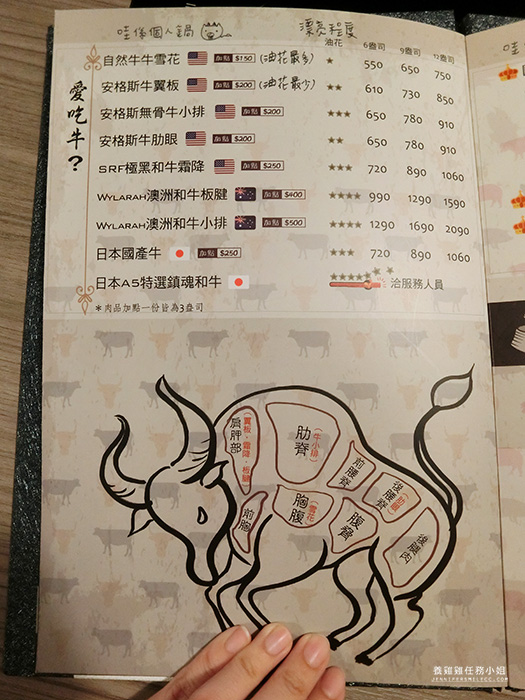 哇係個人鍋 漂亮程度
油花 6盎司 9盎司 12盎司
愛吃牛?
自然牛牛雪花 加點 $150 (油花最多) ★ 550 650 750
安格斯牛翼板 加點 $200 (油花最少) ★★★ 610 730 850
安格斯無骨牛小排 加點 $200 ★★★ 650 780 910
安格斯牛肋眼 加點 $200 ★★ 650 780 910
SRF極黑和牛霜降 加點 $250 ★★★ 720 890 1060
WYLARAH澳洲和牛板腱 加點 $400 ★★★★ 990 1290 1590
WYLARAH澳洲和牛小排 加點 $500 ★★★★ 1290 1690 2090
日本國產牛 加點 $250 ★★★ 720 890 1060
日本A5特選鎮魂和牛 ★★★★★★★ 洽服務人員
*肉品加點一份皆為3盎司
肩胛部
(翼板、霜降、板腱)
肋脊
(牛小排)
前腰脊
後腰脊
前胸
胸腹
(雪花)
腹脅
後腿肉
養雞雞任務小姐
JENNIFERSMILECC.COM